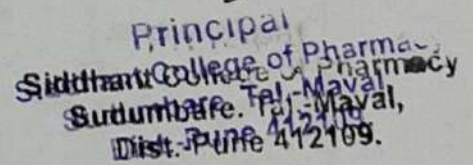 Principal
Siddhant College of Pharmacy
Sudumbare. Tal.-Maval,
Dist.-Pune 412109.